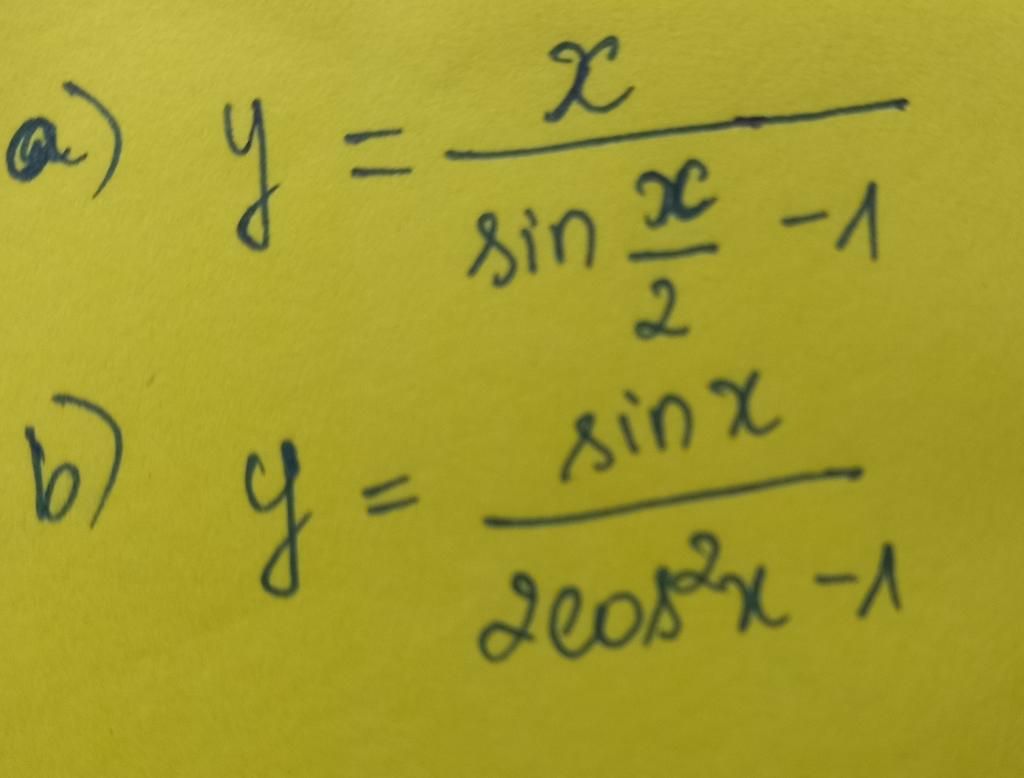 a) y = x / (sin x/2 - 1)
b) y = sin x / (2cos²x - 1)